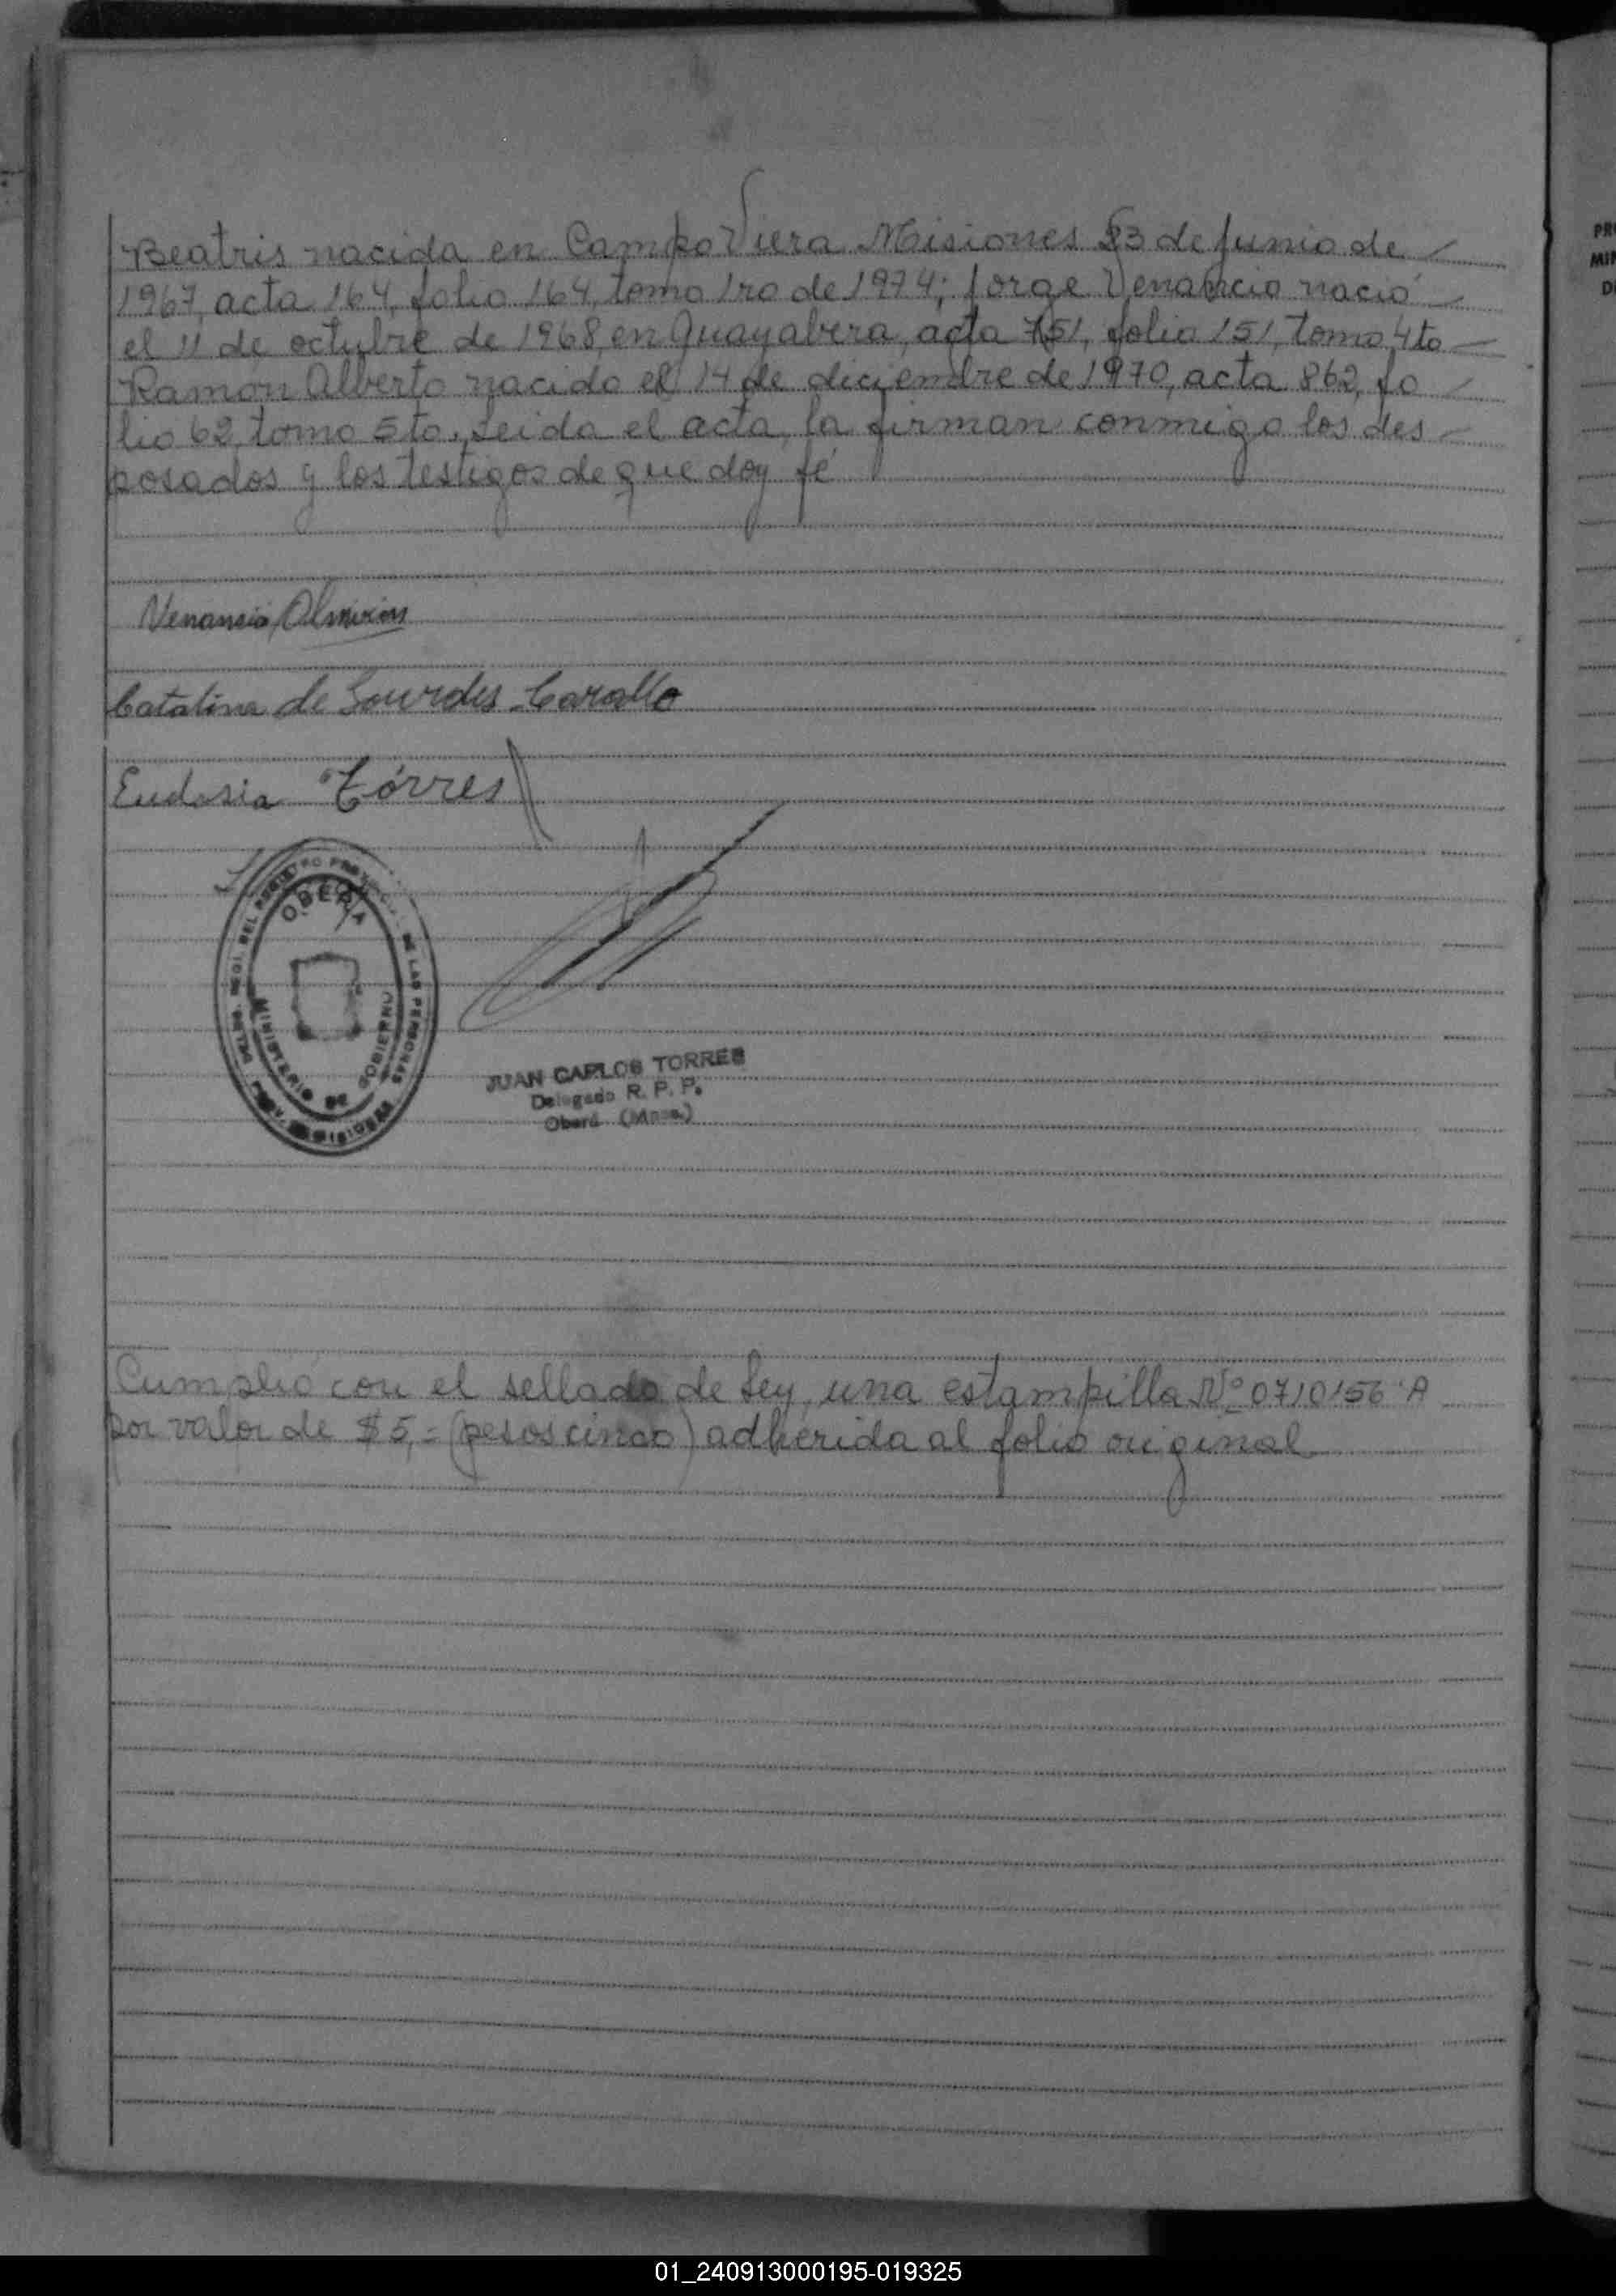 Beatris nacida en Campo Viera Misiones 23 de junio de
1967, acta 164, folio 164, tomo 1ro de 1974; Jorge Venancio nació
el 11 de octubre de 1968, en Guayabera, acta 751, folio 151, tomo 4to
Ramon Alberto nacido el 14 de diciembre de 1970, acta 862, fo
lio 62, tomo 5to. Leida el acta, la firman conmigo los des
posados y los testigos de que doy fé
Venancio
Catalina de Lourdes
Eudosia Tórres
OBERA
MINISTERIO DE GOBIERNO
DE LAS PERSONAS
MISIONES
JUAN CARLOS TORRES
Delegado R. P. P.
Oberá (Mnes.)
Cumplió con el sellado de Ley, una estampilla Nº 0710156 A
por valor de $ 5,= (pesos cinco) adherida al folio original
PR
MIN
D
01_240913000195-019325